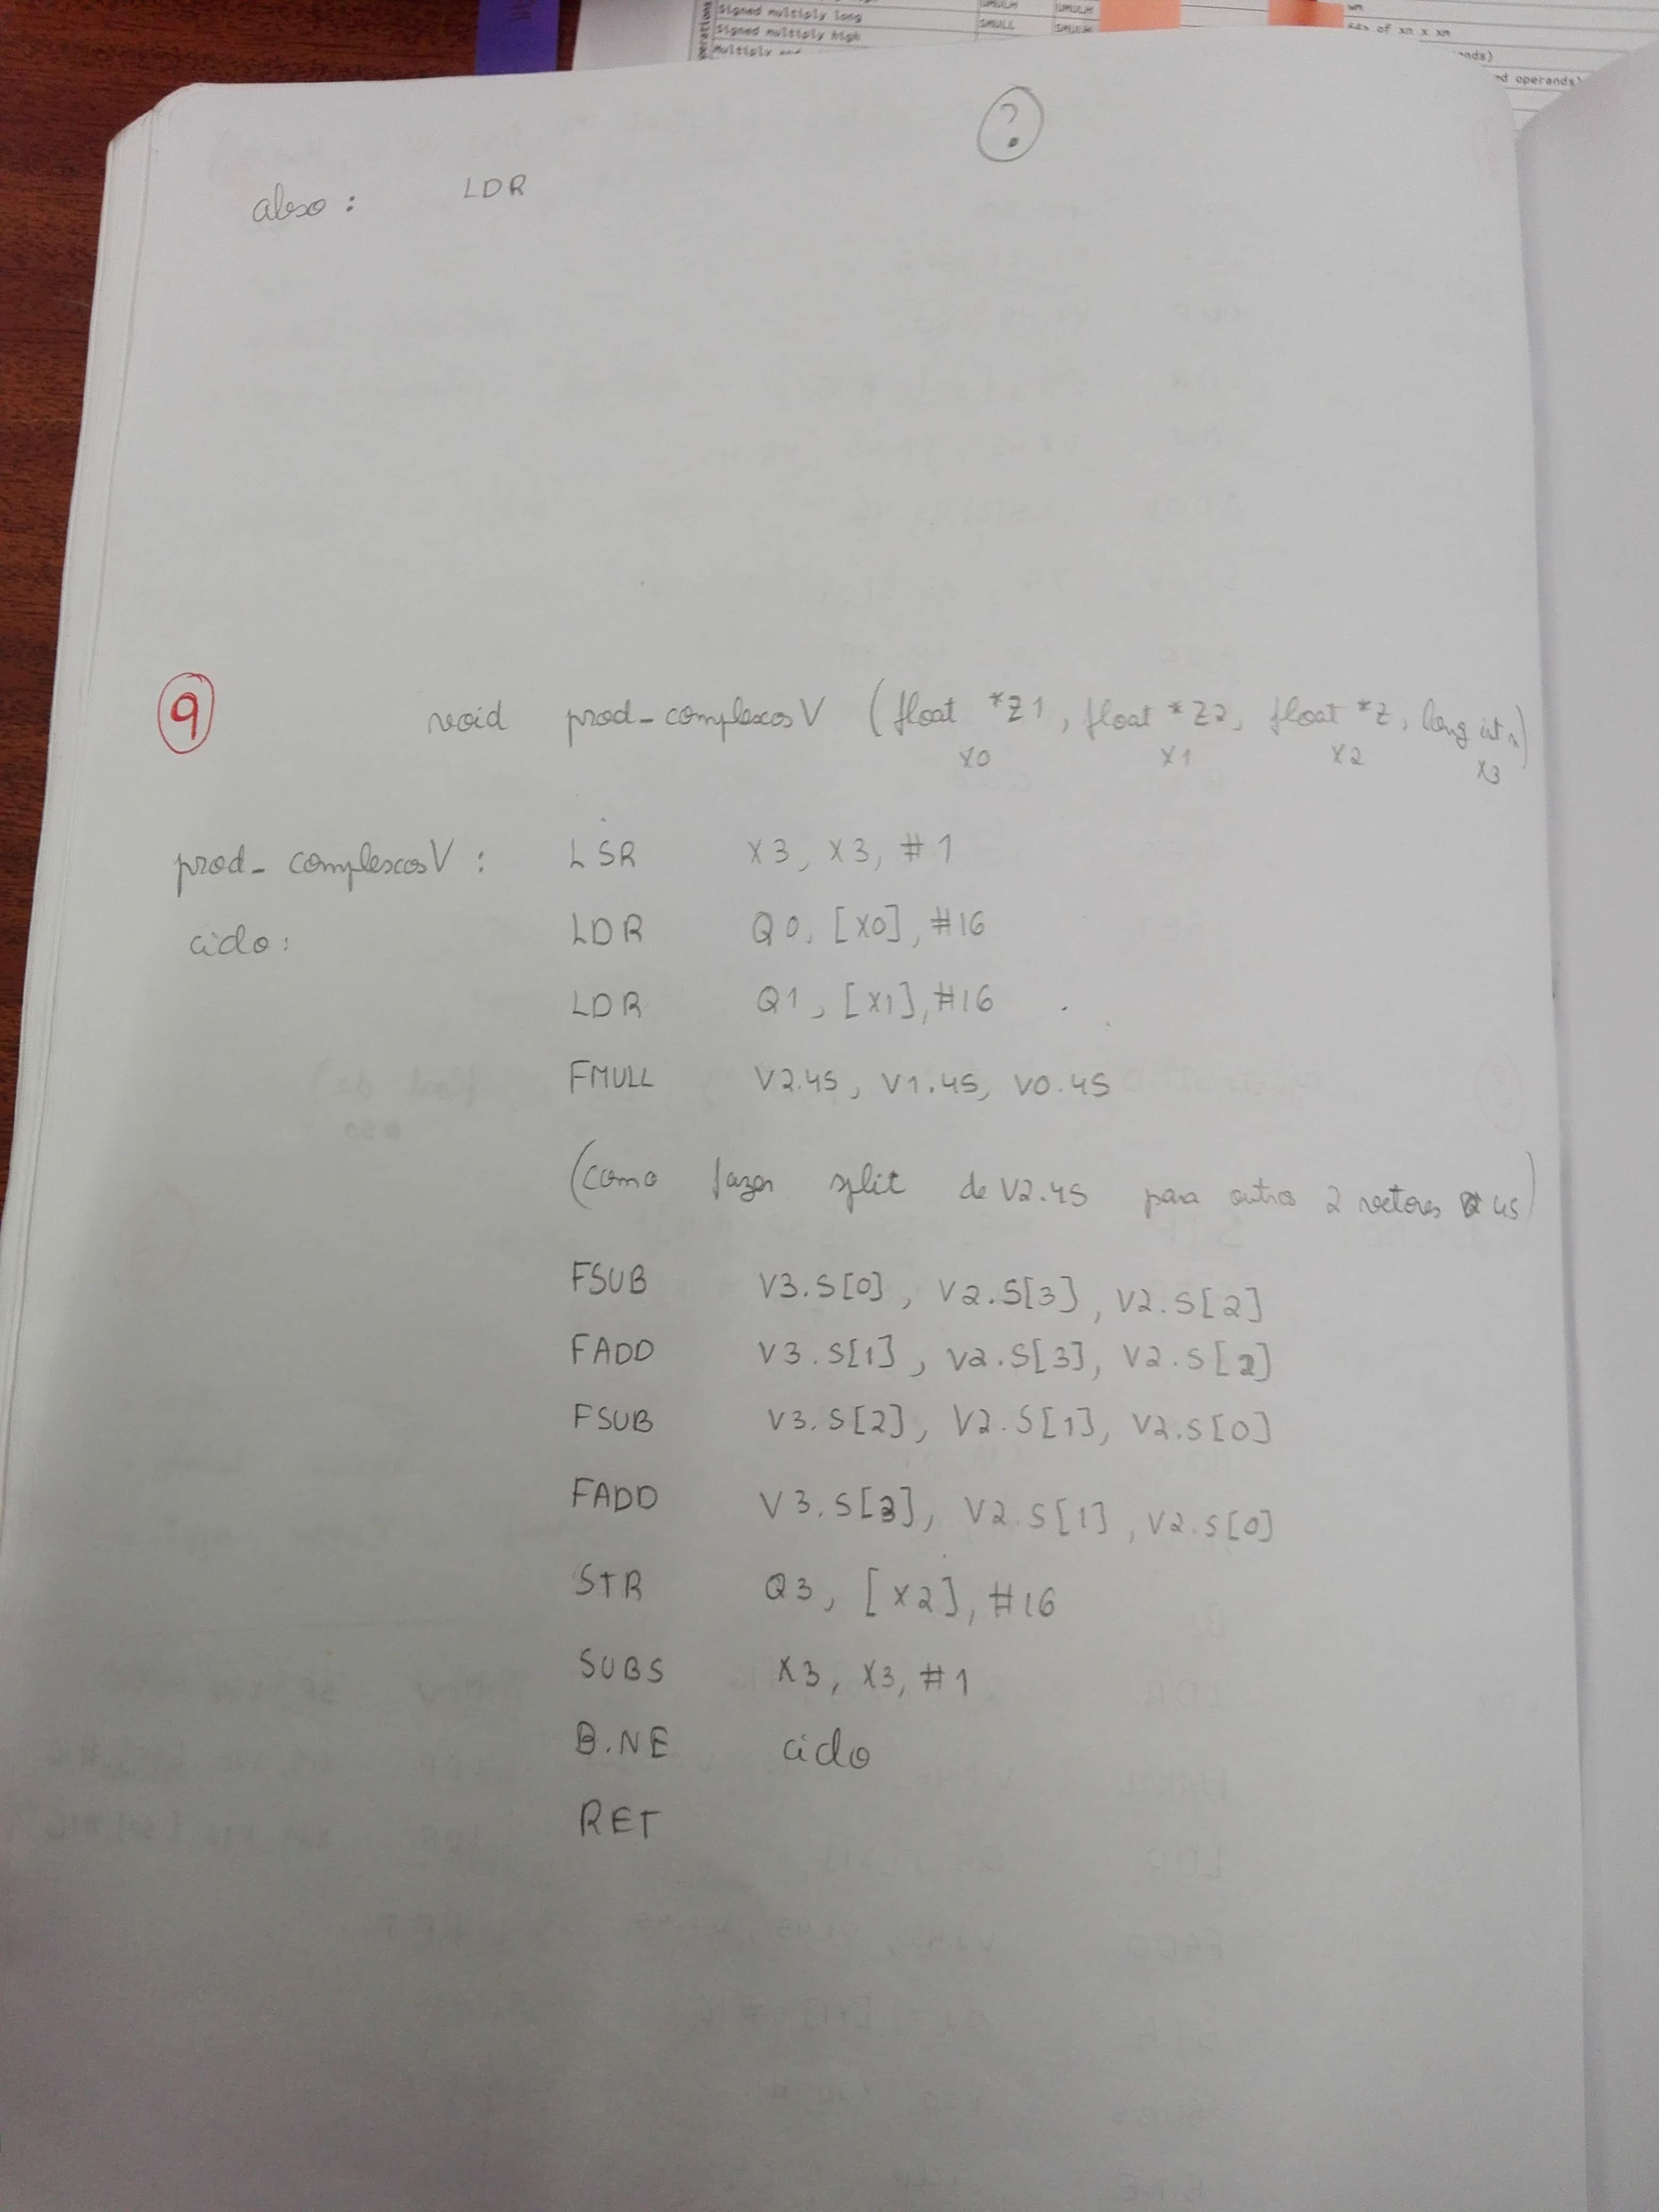 Signed multiply long
Signed multiply high
SMULL
of xn x xm
?
abso : LDR
9
void prod_complexosV (float *Z1, float *Z2, float *Z, long int n)
X0 X1 X2 X3
prod_complexosV : LSR X3, X3, #1
ciclo: LDR Q0, [X0], #16
LDR Q1, [X1], #16
FMULL V2.4S, V1.4S, V0.4S
(como fazer split de V2.4S para outros 2 vetores 4S)
FSUB V3.S[0], V2.S[3], V2.S[2]
FADD V3.S[1], V2.S[3], V2.S[2]
FSUB V3.S[2], V2.S[1], V2.S[0]
FADD V3.S[3], V2.S[1], V2.S[0]
STR Q3, [X2], #16
SUBS X3, X3, #1
B.NE ciclo
RET